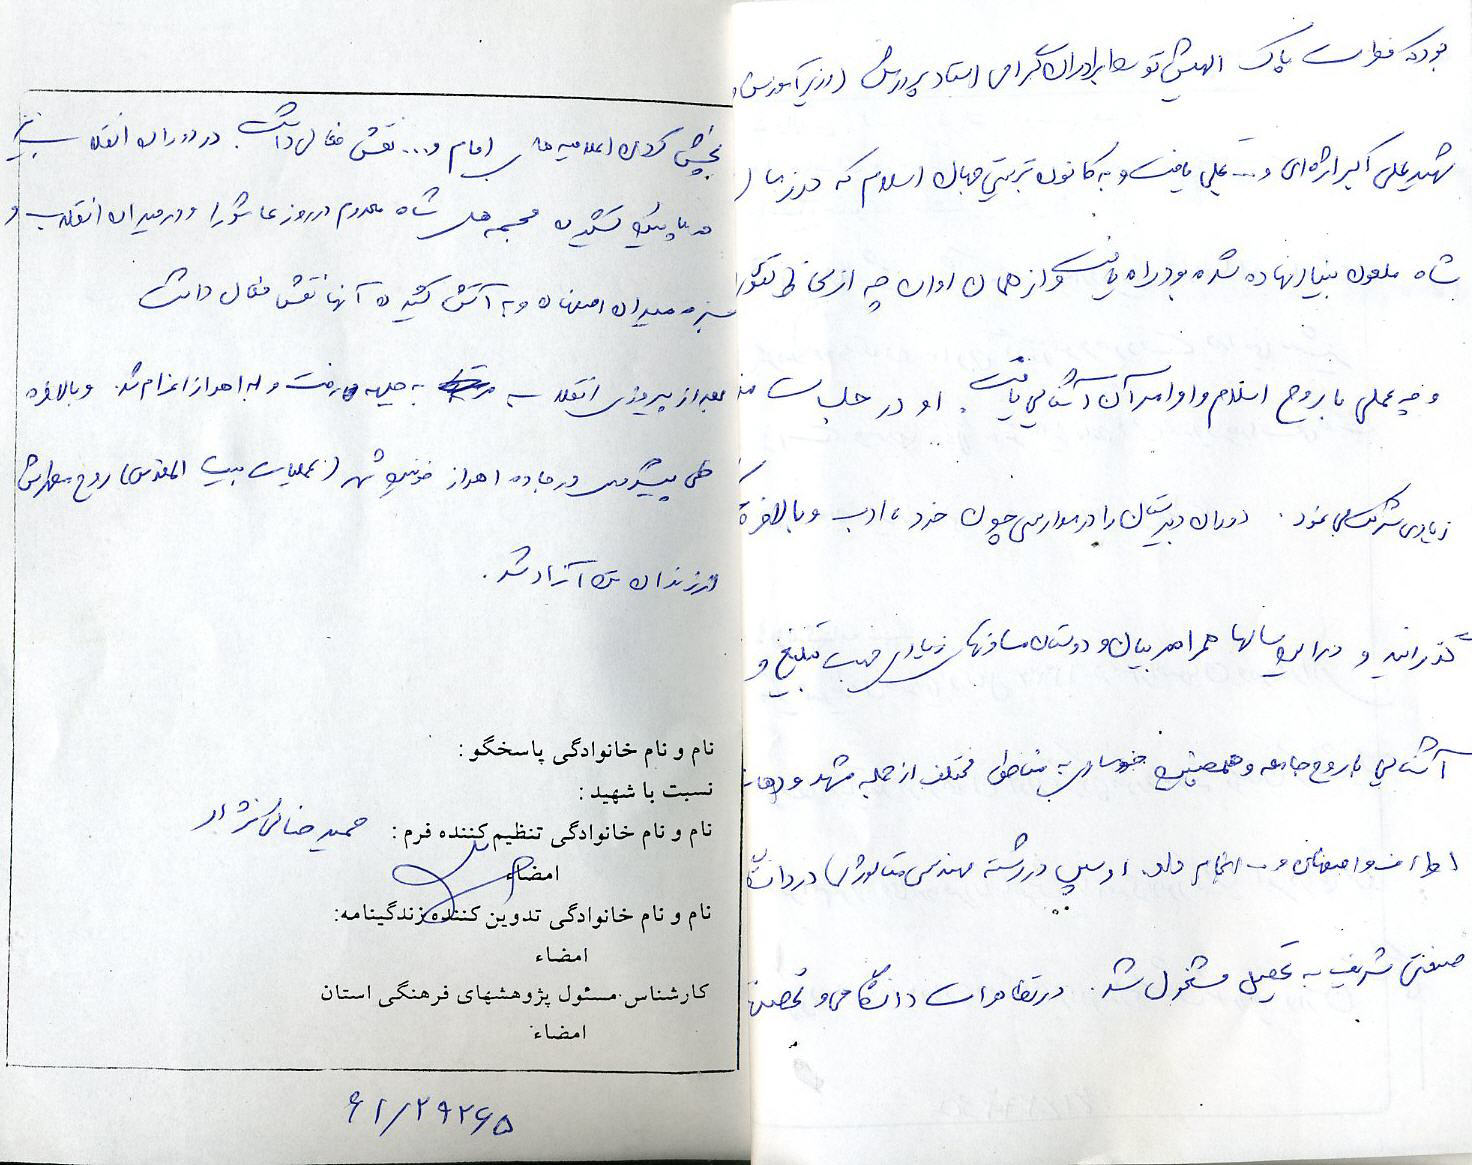 بود که فطرت پاک الهیش توسط برادران گرامی استاد پرورش (وزیر آموزش و
شهید علی اکبر اژه‌ای و ... تجلی یافت و به کانون تربیتی جهان اسلام که در زمان
شاه ملعون بنیان نهاده شده بود راه یافت و از همان اوان چه از لحاظ تئوری
و چه عملی با روح اسلام و اوامر آن آشنایی یافت. او در جلسات
زیادی شرکت می نمود. دوران دبیرستان را در مدارسی چون خرد، ادب و بالاخره
گذرانید و در این سالها همراه مربیان و دوستان مسافرتهای زیادی جهت تبلیغ و
آشنایی با روح جامعه و همچنین به مناطق مختلف از جمله مشهد و دهات
اطراف اصفهان و ... انجام داد. او سپس در رشته مهندسی متالورژی در دانشگاه
صنعتی شریف به تحصیل مشغول شد. در تظاهرات دانشگاهی و تحصن
پخش کردن اعلامیه های امام و ... نقش فعالی داشت. در دوران انقلاب نیز
در پایین کشیدن مجسمه های شاه معدوم در روز عاشورا و در میدان انقلاب و
سیزده میدان اصفهان و به آتش کشیدن آنها نقش فعال داشت
بعد از پیروزی انقلاب به جبهه رفت و به اهواز اعزام شد. و بالاخره
طی پیشروی در جاده اهواز خرمشهر (عملیات بیت المقدس) روح مطهرش
از زندان تن آزاد شد.
نام و نام خانوادگی پاسخگو :
نسبت با شهید :
نام و نام خانوادگی تنظیم کننده فرم : حمید
امضاء
نام و نام خانوادگی تدوین کننده زندگینامه:
امضاء
کارشناس مسئول پژوهشهای فرهنگی استان
امضاء
۶۱/۲۹۲۶۵